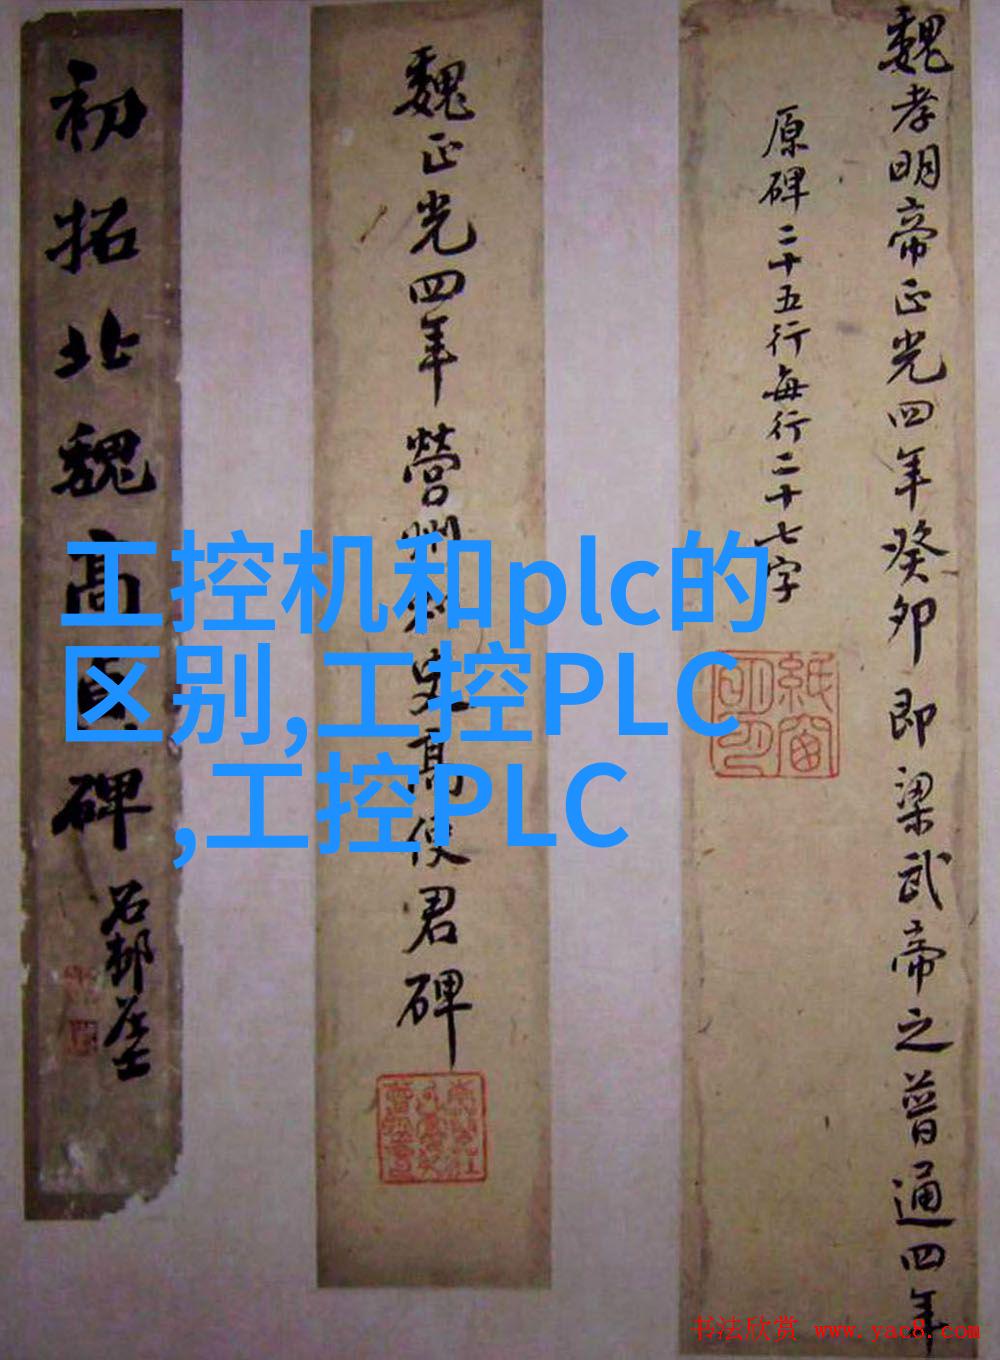 魏孝明帝正光四年癸卯即梁武帝之普通四年
原碑二十五行每行二十七字
魏正光四年營州刺史高使君碑
初拓北魏高貞碑
工控机和plc的
区别,工控PLC
,工控PLC
书法欣赏 www.yac8.com